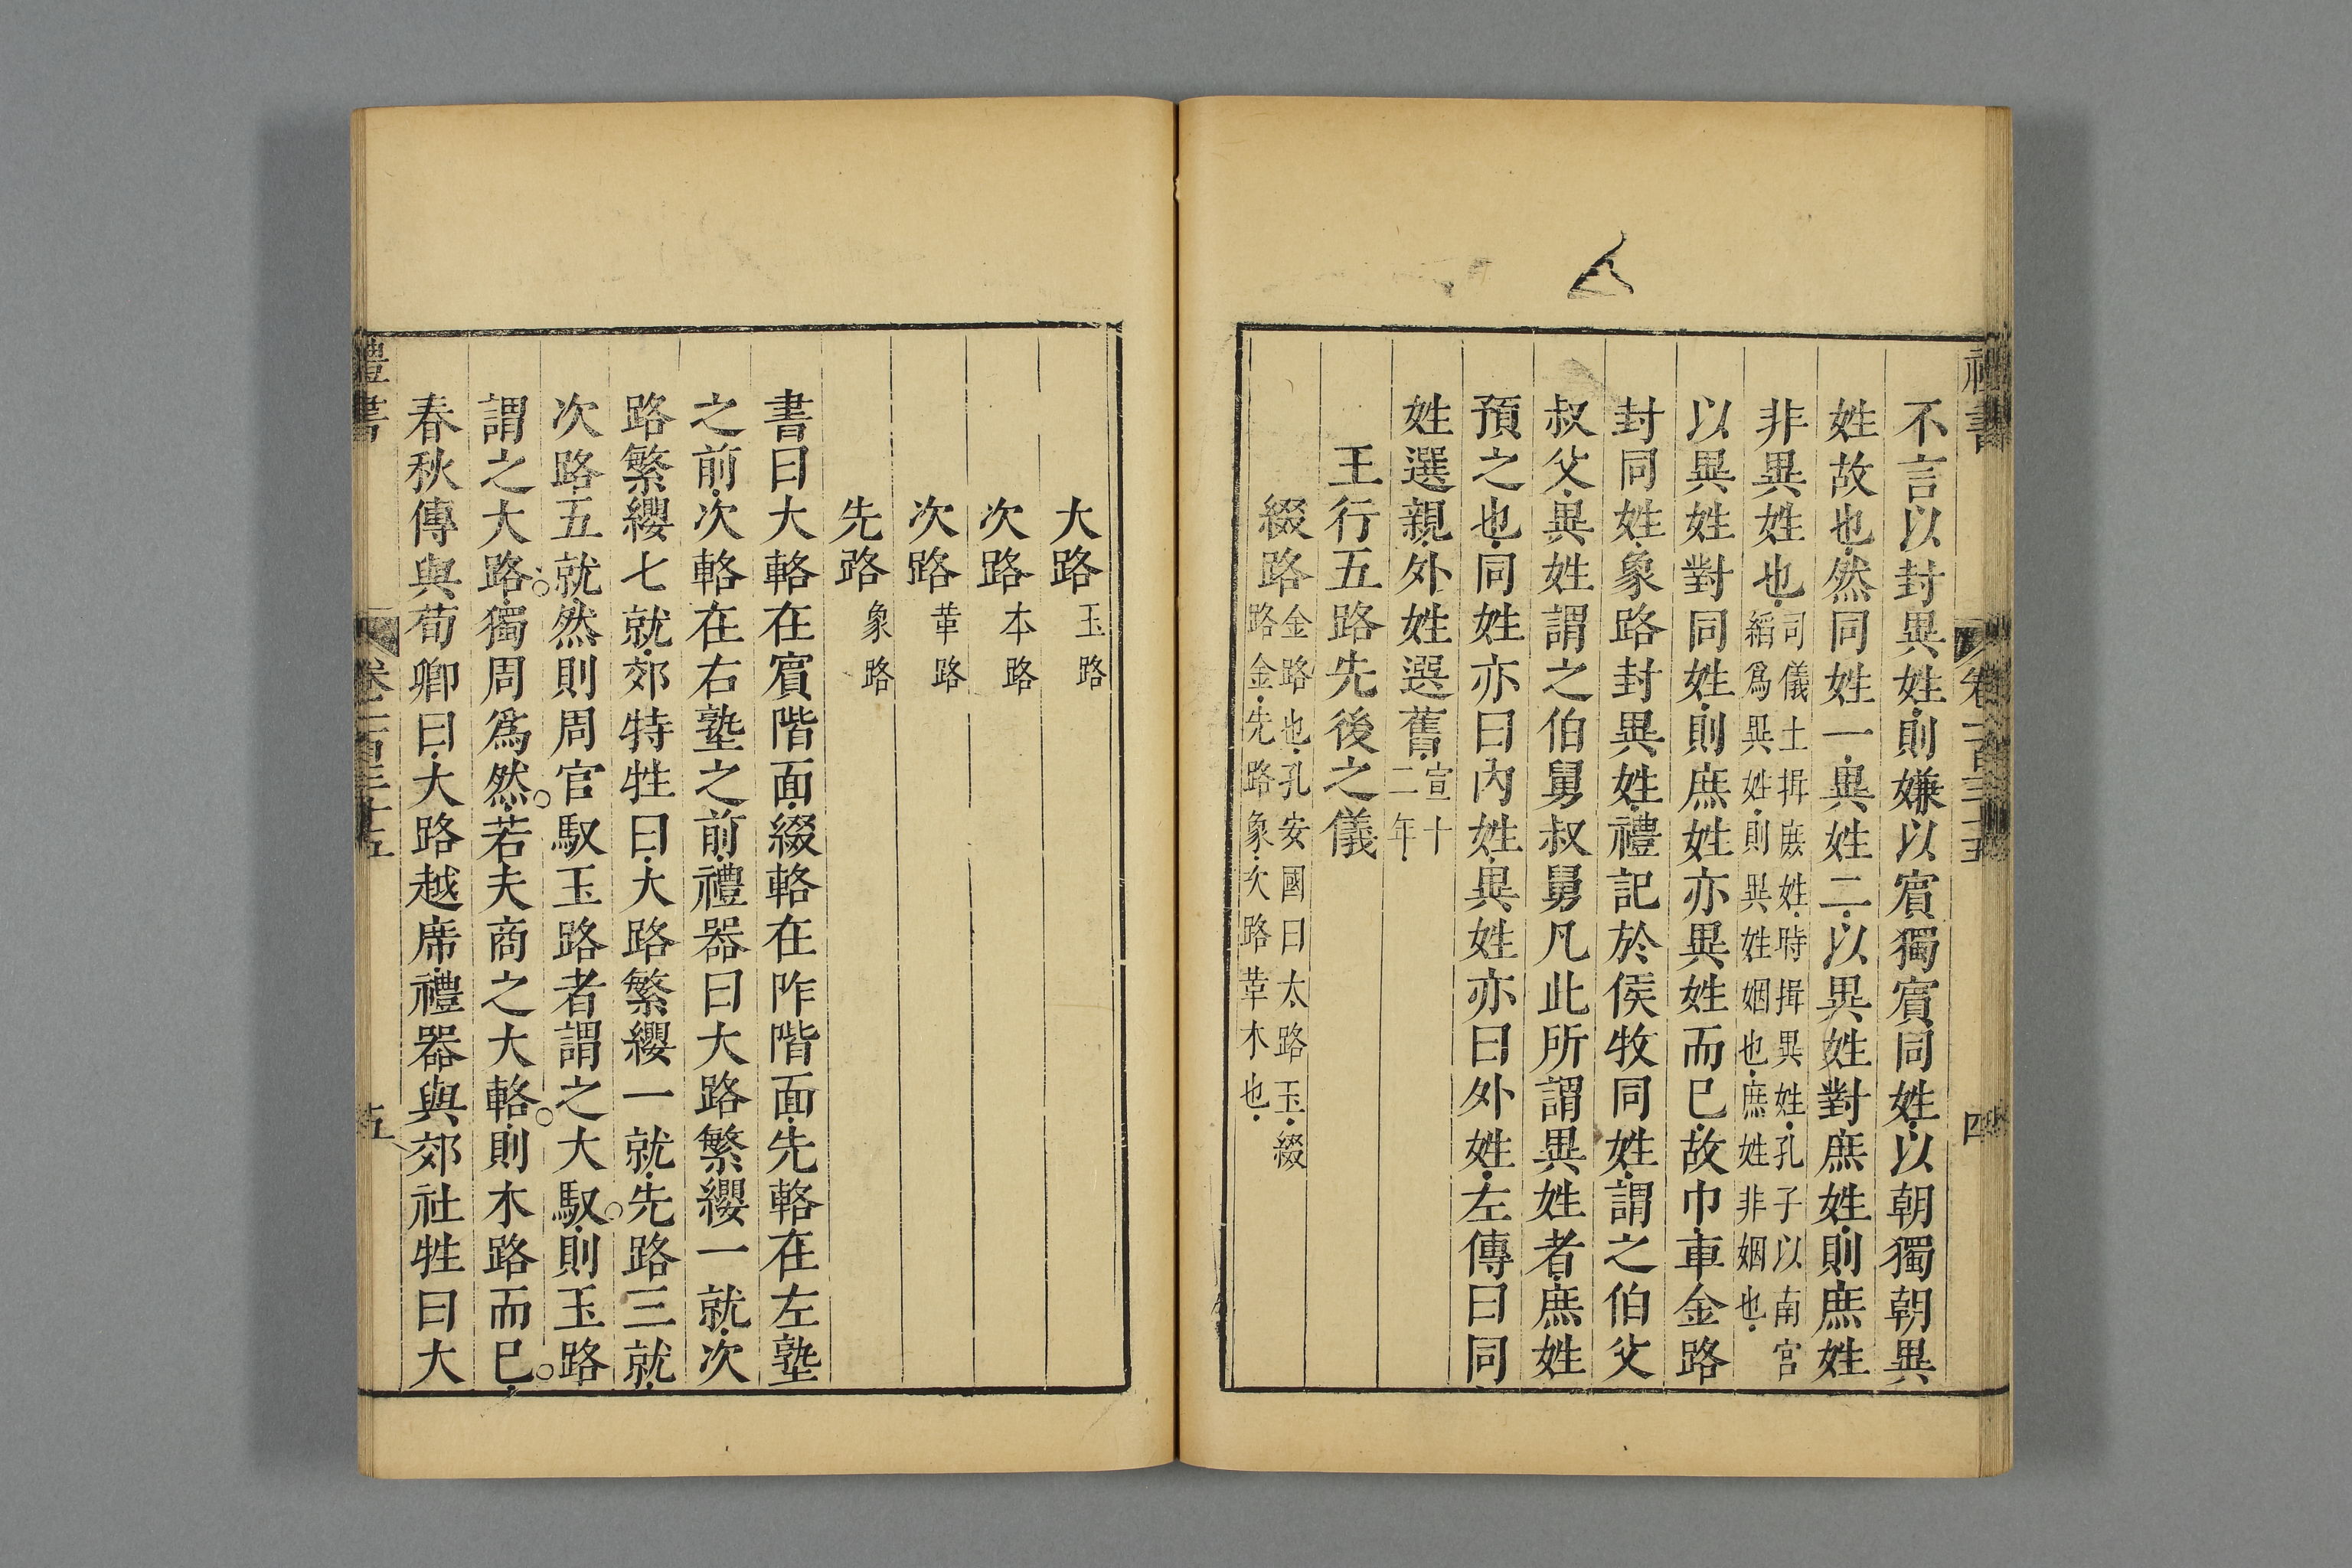 不言以封異姓則嫌以賓獨賓同姓以朝獨朝異
姓故也然同姓一異姓二以異姓對庶姓則庶姓
非異姓也司儀土揖庶姓時揖異姓孔子以南宮
縚爲異姓則異姓姻也庶姓非姻也
以異姓對同姓則庶姓亦異姓而已故巾車金路
封同姓象路封異姓禮記於侯牧同姓謂之伯父
叔父異姓謂之伯舅叔舅凡此所謂異姓者庶姓
預之也同姓亦曰內姓異姓亦曰外姓左傳曰同
姓選親外姓選舊宣十
二年
王行五路先後之儀
綴路金路也孔安國曰大路玉綴
路金先路象次路革木也
大路玉路
次路本路
次路革路
先路象路
書曰大輅在賓階面綴輅在阼階面先輅在左塾
之前次輅在右塾之前禮器曰大路繁纓一就次
路繁纓七就郊特牲曰大路繁纓一就先路三就
次路五就然則周官馭玉路者謂之大馭則玉路
謂之大路獨周爲然若夫商之大輅則木路而已
春秋傳與荀卿曰大路越席禮器與郊社牲曰大
禮書
卷一百三十五
五